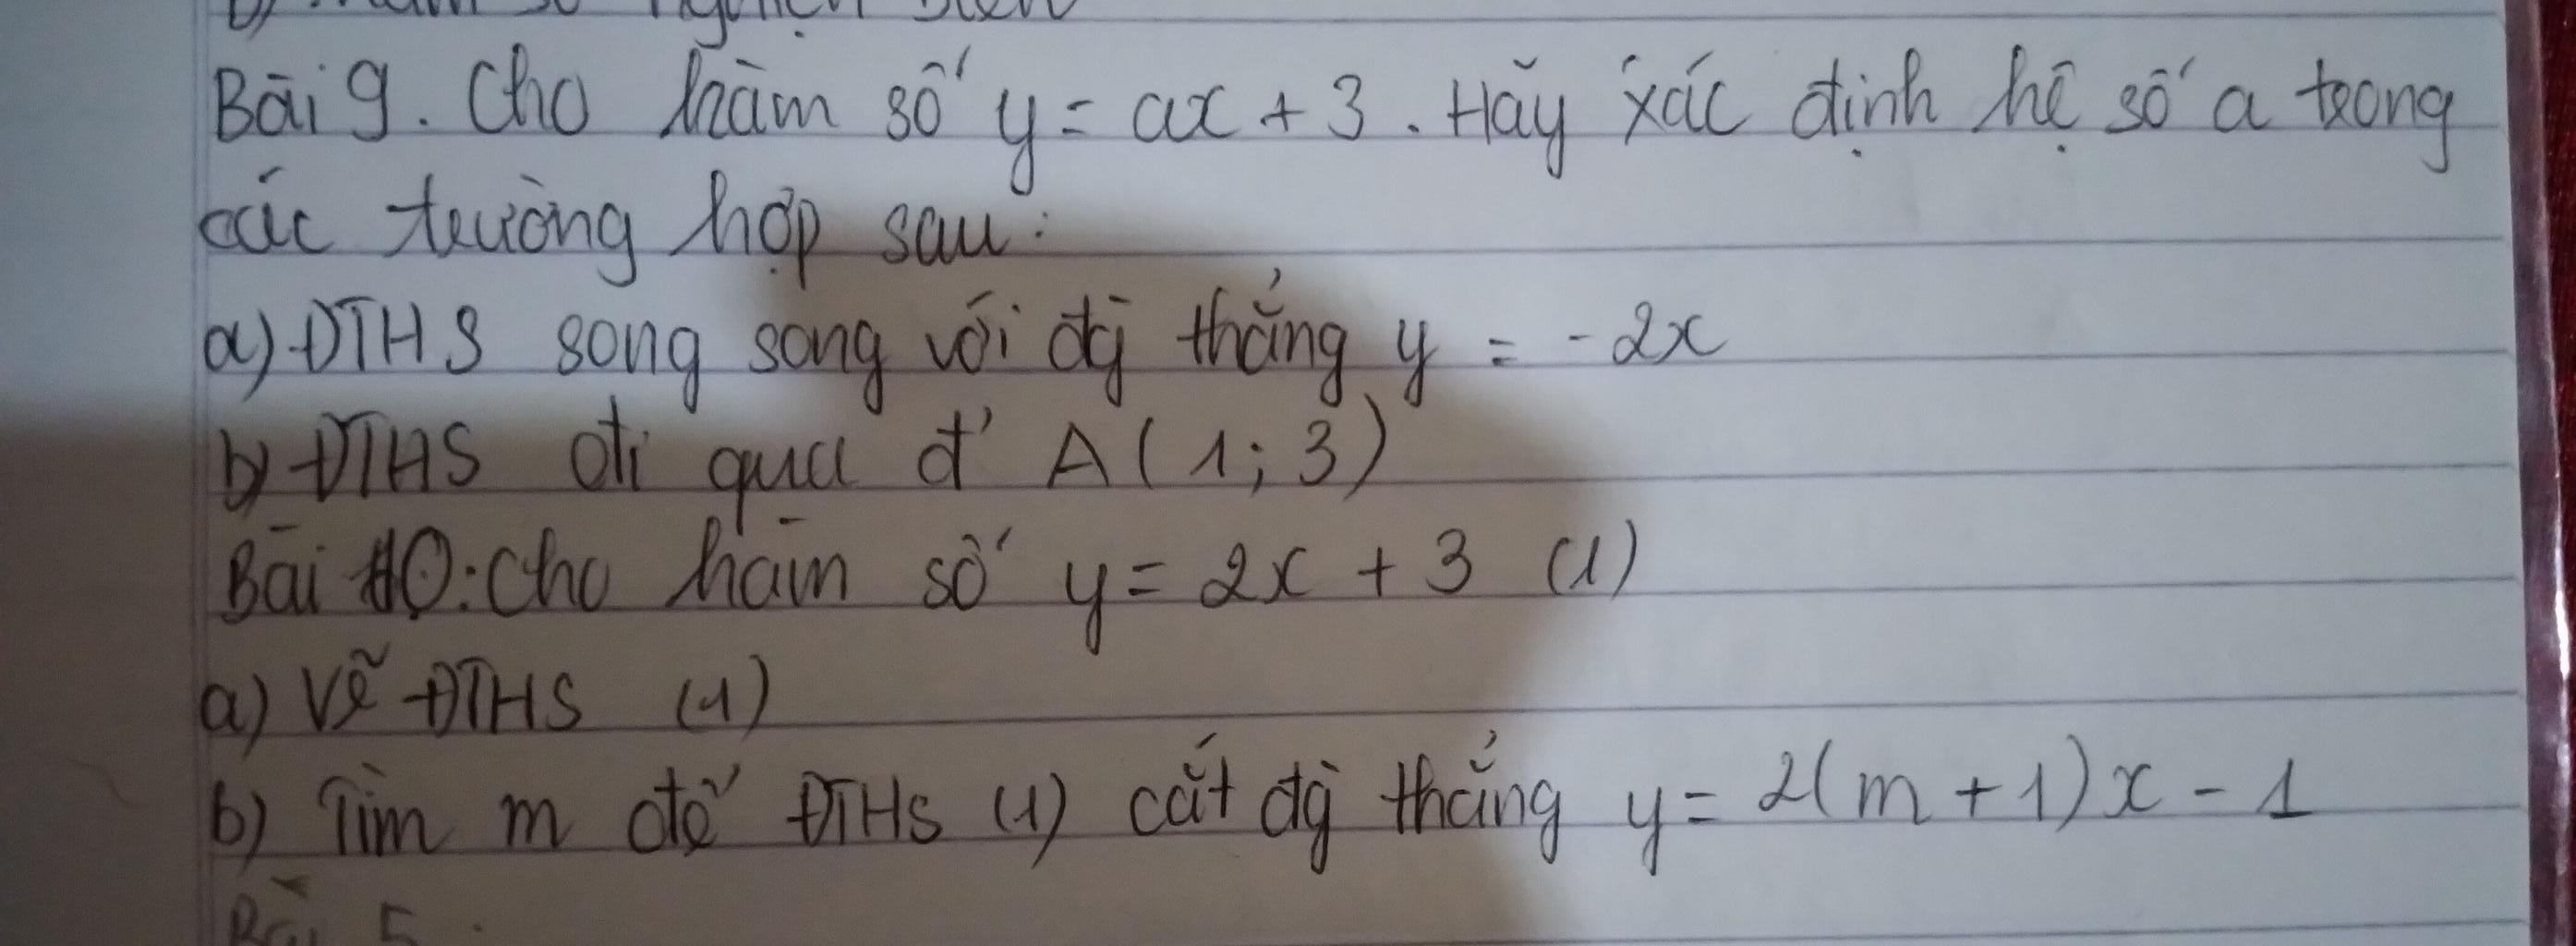 Bài 9. Cho hàm số y = ax + 3. Hãy xác định hệ số a trong
các trường hợp sau:
a) ĐTHS song song với đg thẳng y = -2x
b) ĐTHS đi qua đ' A(1; 3)
Bài 10: Cho hàm số y = 2x + 3 (1)
a) Vẽ ĐTHS (1)
b) Tìm m để ĐTHS (1) cắt đg thẳng y = 2(m + 1)x - 1
Bài 5.